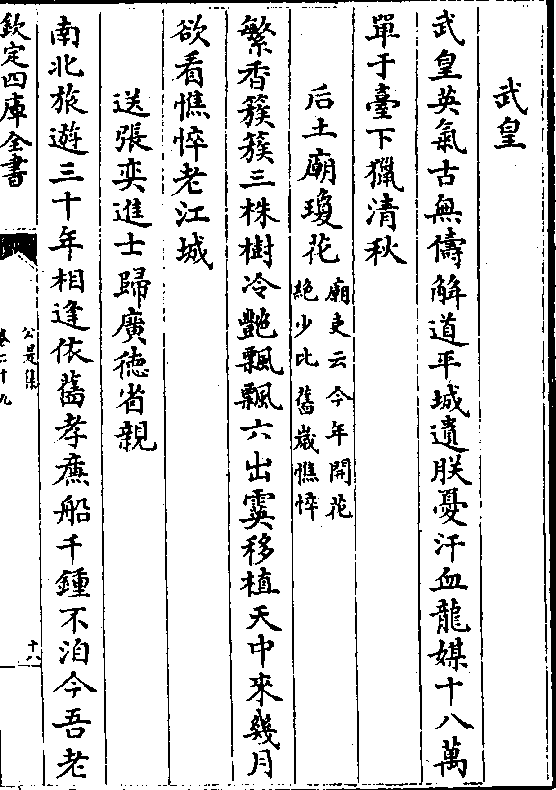 武皇
武皇英氣古無儔解道平城遺朕憂汗血龍媒十八萬
單于臺下獵清秋
后土廟瓊花廟吏云今年開花
絶少比舊嵗憔悴
繁香簇簇三株樹冷艶飄飄六出霙移植天中來幾月
欲看憔悴老江城
送張奕進士歸廣德省親
南北旅遊三十年相逢依舊孝㢘船千鍾不洎今吾老
欽定四庫全書
公是集
卷二十九
十八